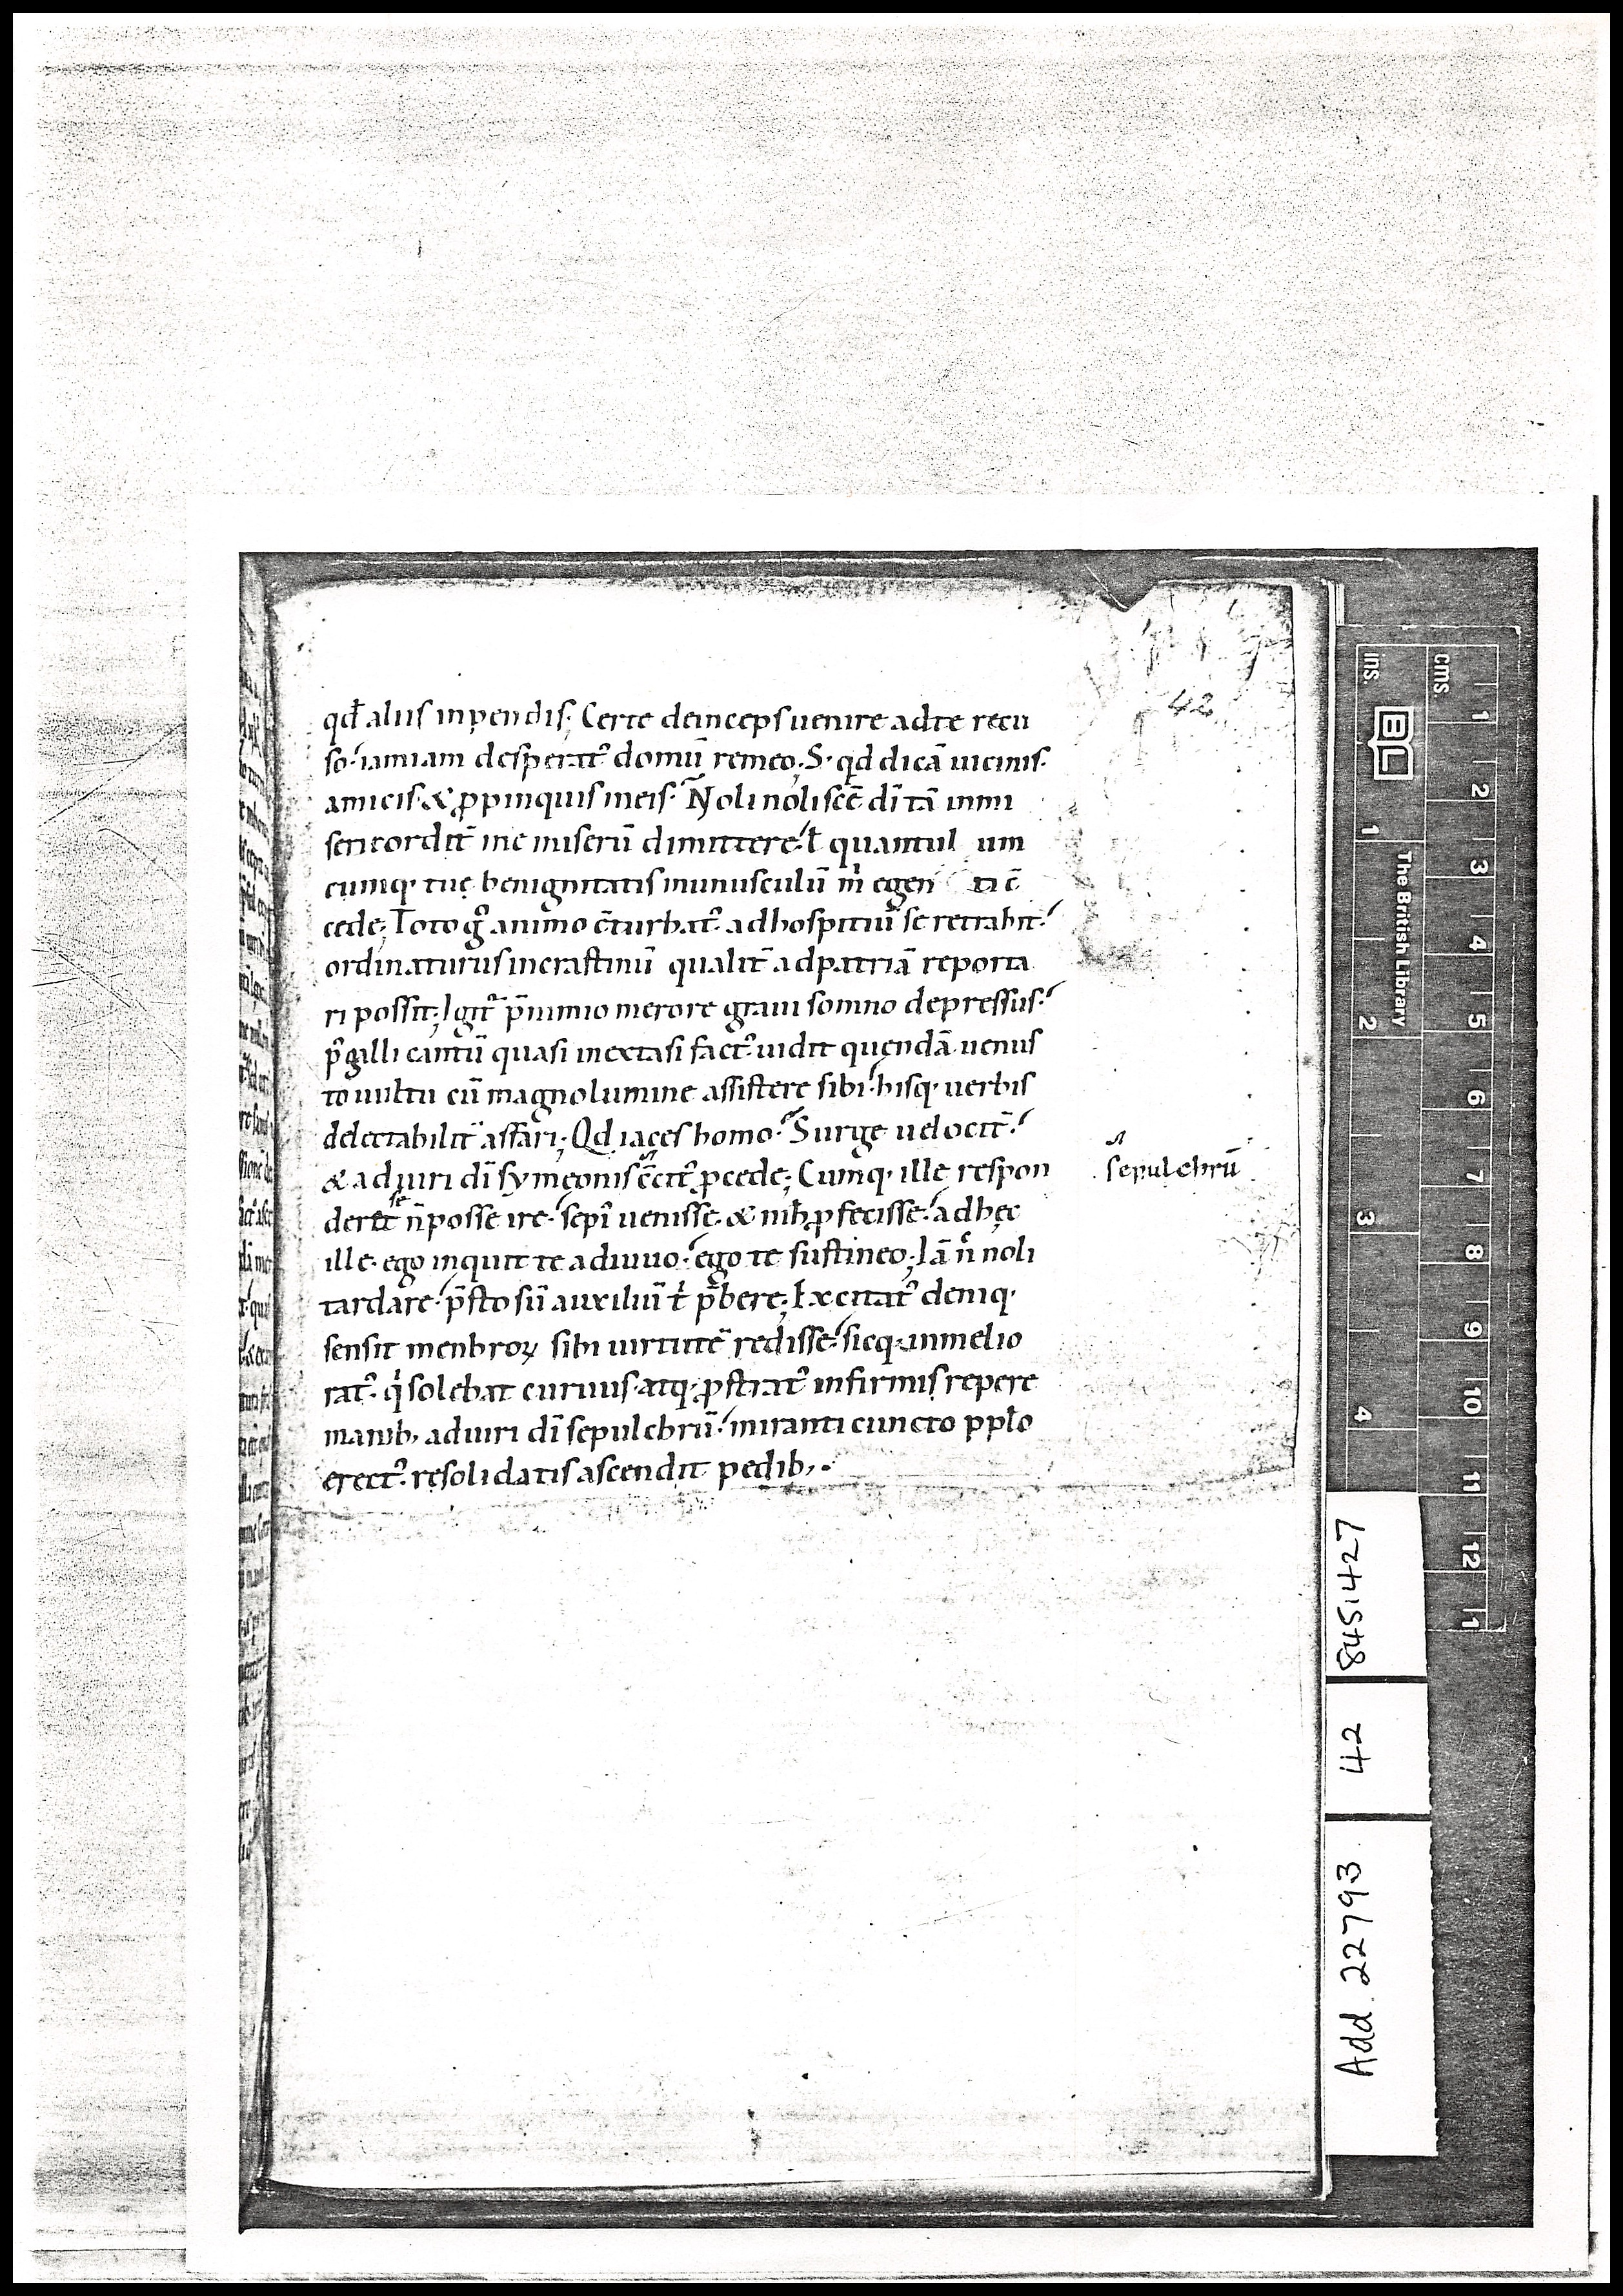 42
qđ aliis inpendis; Certe deinceps uenire adte recu
so. iamiam desperat᾽ domū remeo; S; qd dicā uicinis.
amicis. & ꝓpinquis meis. Noli noli scē dī tā inmi
sericordit̄ me miserū dimittere. ł quantul um
cumq· tuę benignitatis munusculū m̄ egen ti c̄
cede; Toto g̊ animo c̄turbat᾽ adhospitiū se retrahit.
ordinaturus incrastinū qualit̄ adpatriā reporta
ri possit; Igit᾽ p̄nimio merore graui somno depressus.
p᾽galli cantū quasi inextasi fact᾽ uidit quendā uenus
to uultu cū magnolumine assistere sibi. hisq· uerbis
delectabilit̄ affari; Qd iaces homo. Surge uelocit̄.
& aduiri dī symeonis c̄cit᾽ ꝓcede; Cumq· ille respon
sepulchrū
deret se n̄posse ire. sepī uenisse. & nih̄ ꝓfecisse. adhęc
ille. ego inquit te adiuuo. ego te sustineo; Iā n̊ noli
tardare. p̄sto sū auxiliū t̓ p̄bere; Excitat᾽ deniq·
sensit menbroꝝ sibi uirtutē redisse. sicq· inmelio
rat᾽. q̓ solebat curuus. atq· ꝓstrat᾽ infirmis repere
manib; aduiri dī sepulchrū. miranti cuncto ppło
erect᾽. resolidatis ascendit pedib;.
BL
The British Library
ins. 1 2 3 4
cms 1 2 3 4 5 6 7 8 9 10 11 12
845,427
42
Add. 22793